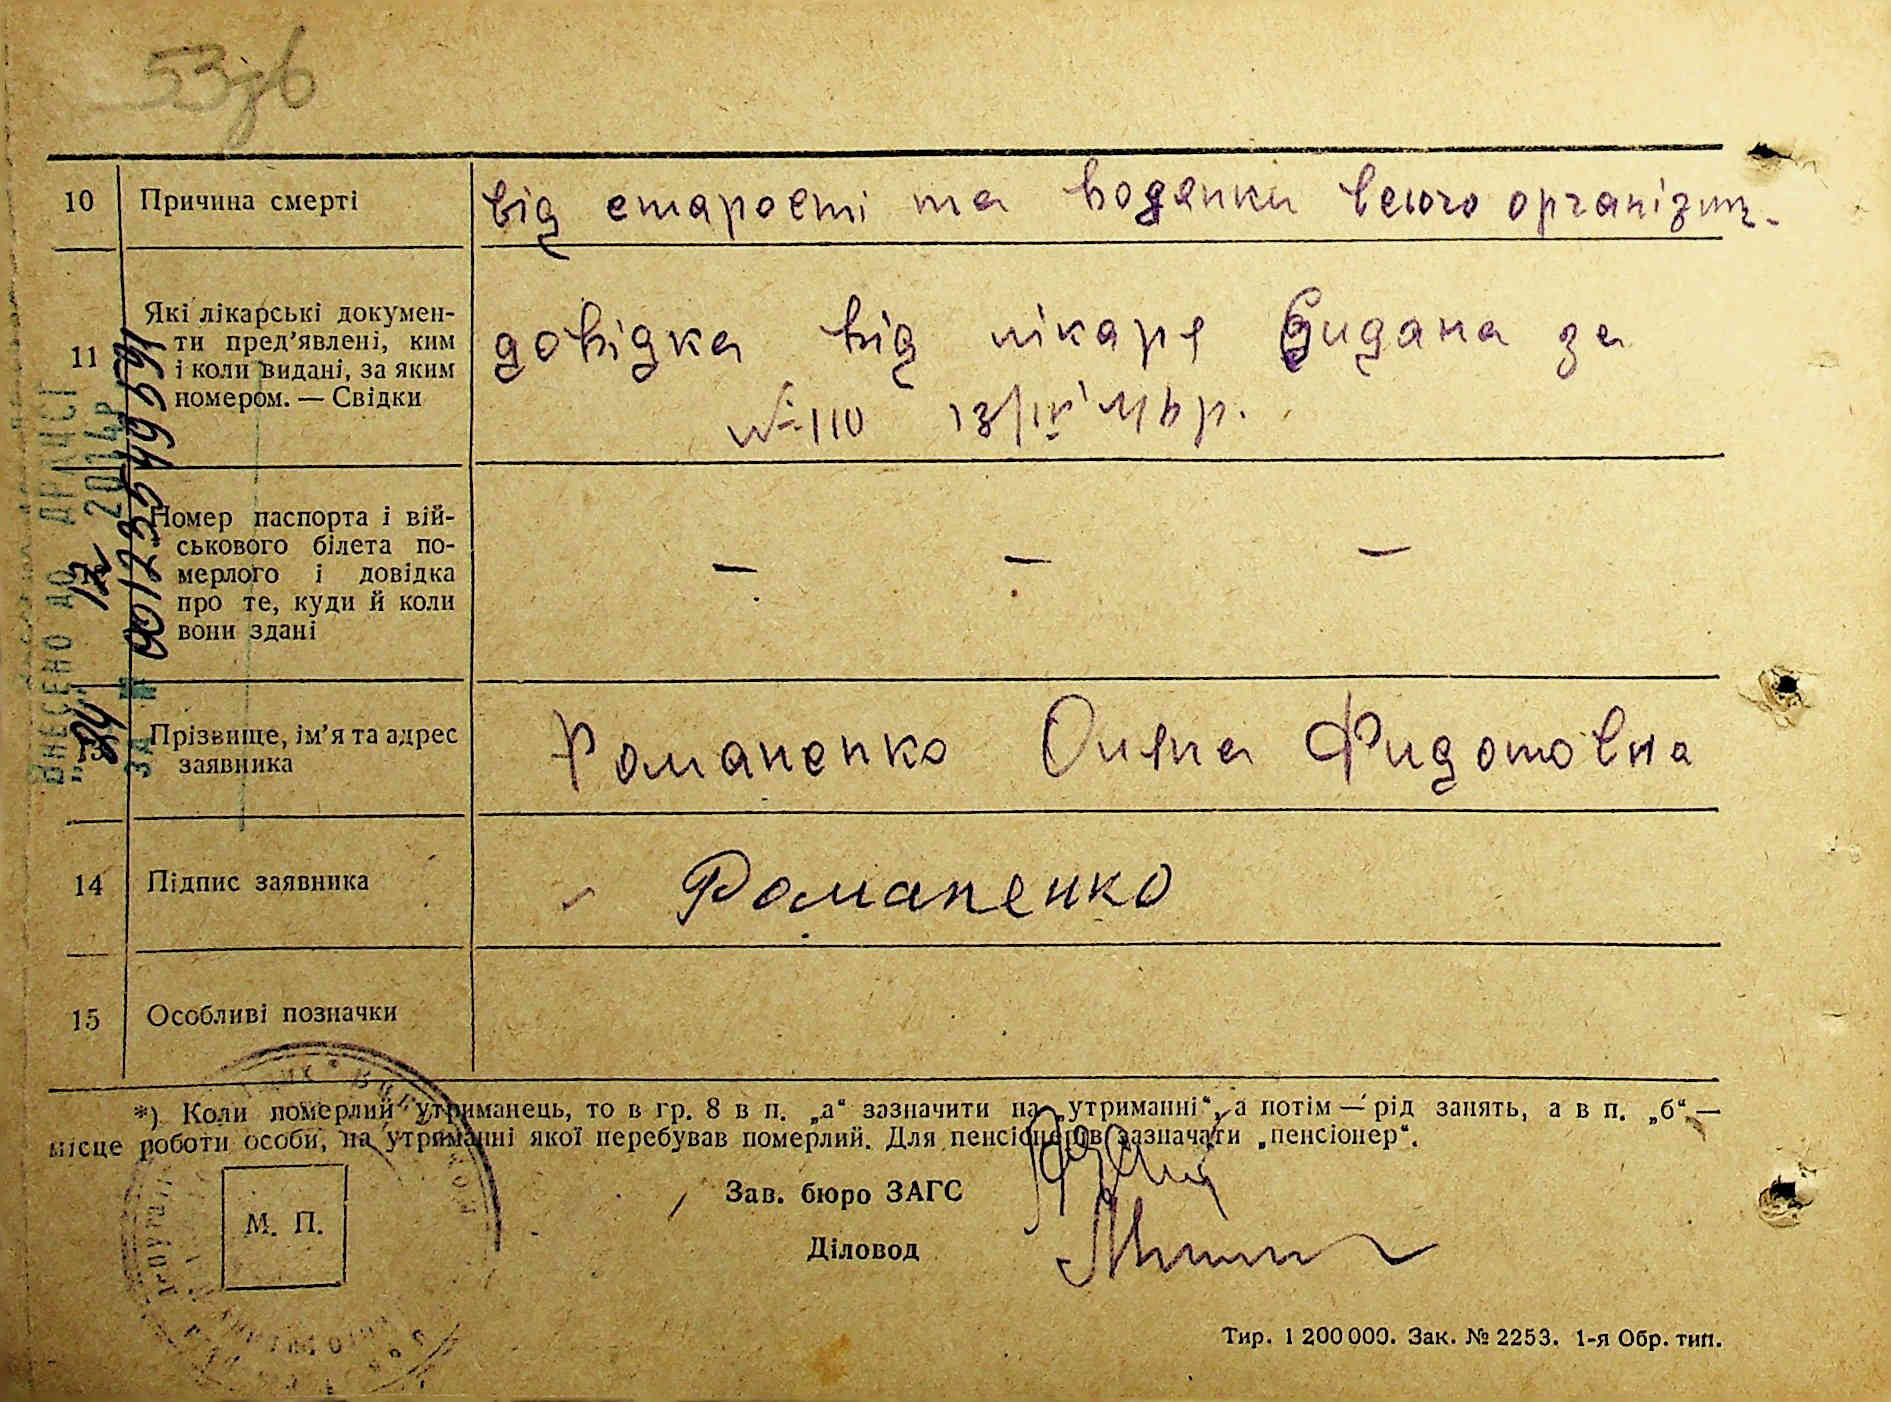 53зв
10 Причина смерті від старості та водянки всього організму.
11 Які лікарські докумен-
ти пред’явлені, ким
і коли видані, за яким
номером. — Свідки
довідка від лікаря видана за
№ 110 13/IV
Номер паспорта і вій-
ськового білета по-
мерлого і довідка
про те, куди й коли
вони здані
— — —
13 Прізвище, ім’я та адрес
заявника
Романенко Оляна Фидотовна
14 Підпис заявника Романенко
15 Особливі позначки
*) Коли померлий утриманець, то в гр. 8 в п. „а“ зазначити на „утриманні“, а потім — рід занять, а в п. „б“ —
місце роботи особи, на утриманні якої перебував померлий. Для пенсіонерів зазначати „пенсіонер“.
Зав. бюро ЗАГС
М. П.
Діловод
Тир. 1 200 000. Зак. № 2253. 1-я Обр. тип.
ВНЕСЕНО ДО ДРАЦСГ
„24“ 12 2014р
ЗА № 00123549591